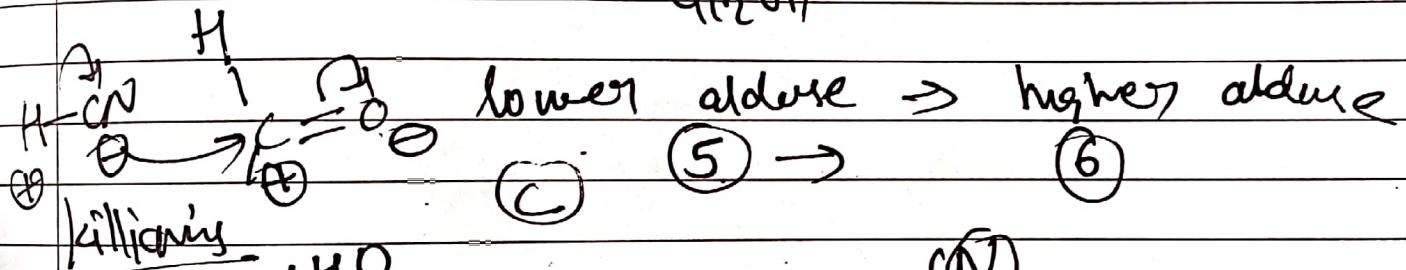 H
H-CN C=O lower aldose → higher aldose
⊖ ⊖ ⑤ → ⑥
⊕ ⊕ Ⓒ
Killianis